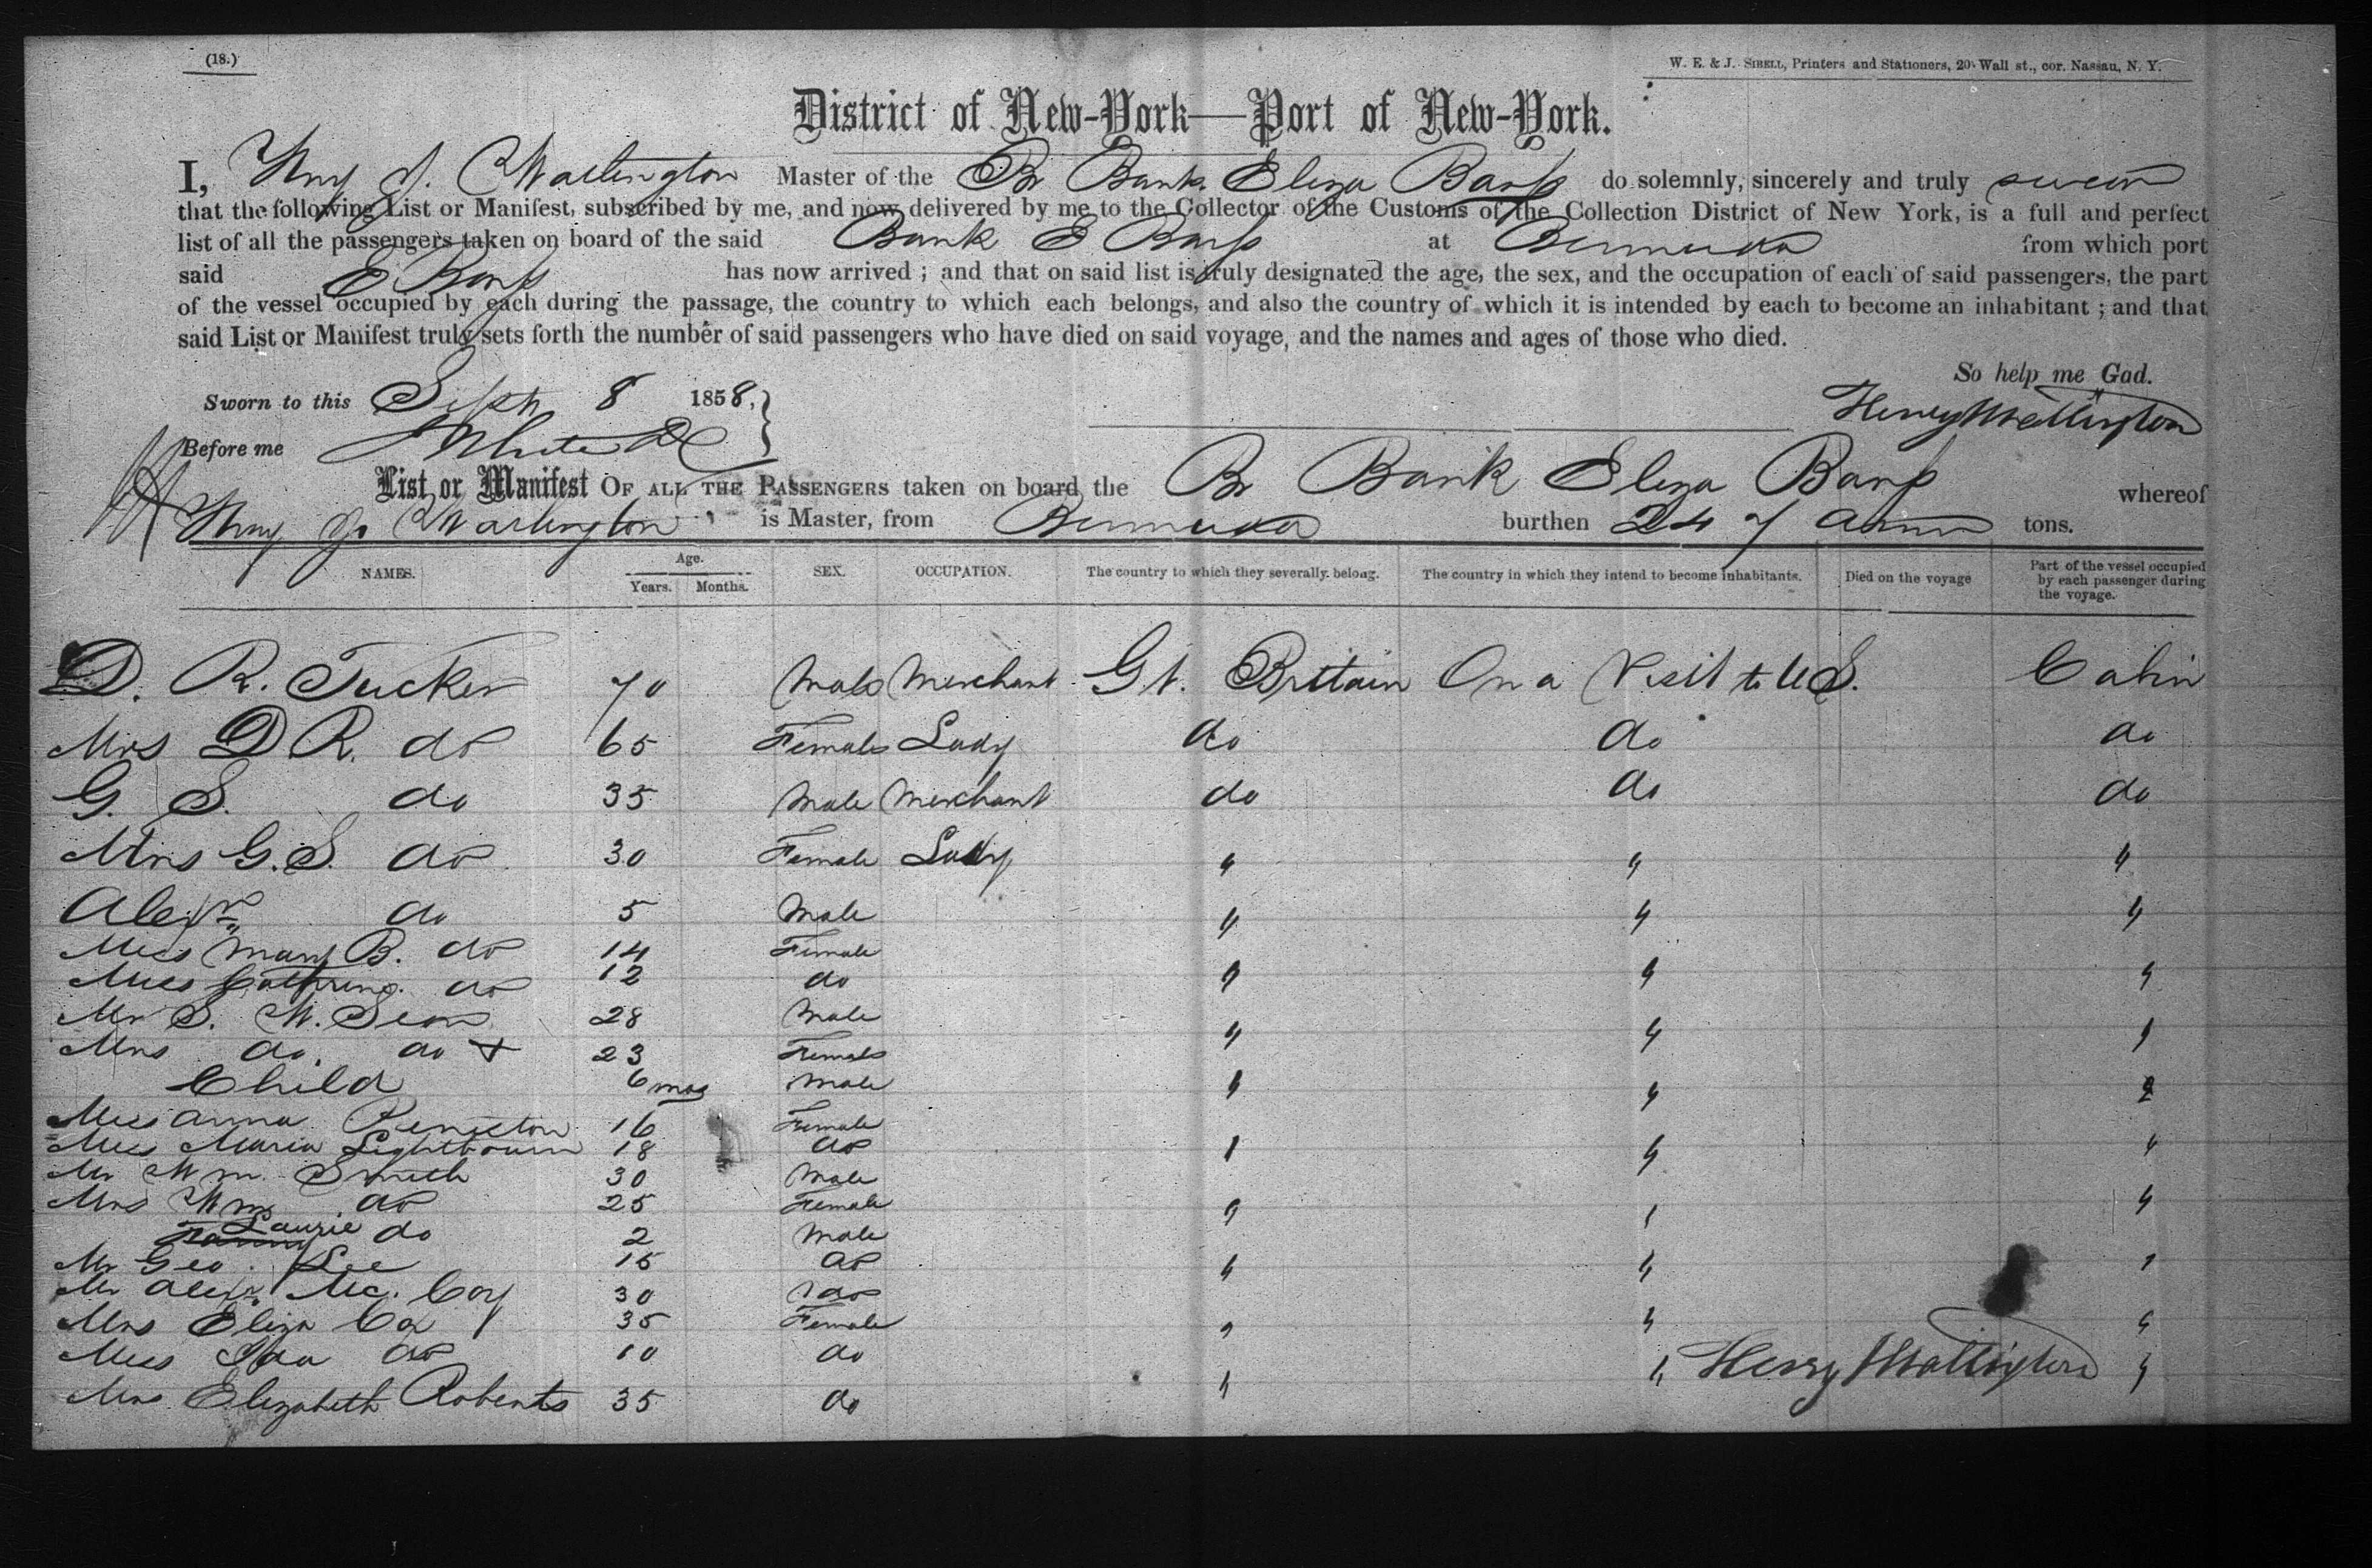 (18.)
W. E. & J. SIBELL, Printers and Stationers, 20 Wall st., cor. Nassau, N. Y.
District of New-York—Port of New-York.
I, Hny J. Wallington Master of the Br Bark Eliza Barss do solemnly, sincerely and truly swear
that the following List or Manifest, subscribed by me, and now delivered by me to the Collector of the Customs of the Collection District of New York, is a full and perfect
list of all the passengers taken on board of the said Bark E Barss at Bermuda from which port
said E Barss has now arrived ; and that on said list is truly designated the age, the sex, and the occupation of each of said passengers, the part
of the vessel occupied by each during the passage, the country to which each belongs, and also the country of which it is intended by each to become an inhabitant ; and that
said List or Manifest truly sets forth the number of said passengers who have died on said voyage, and the names and ages of those who died.
So help me God.
Sworn to this Sept 8 1858,
Henry Wallington
Before me White
List or Manifest OF ALL THE PASSENGERS taken on board the Br Bark Eliza Barss whereof
Hny J. Wallington is Master, from Bermuda burthen 247 tons.
NAMES. Age. Years. Months. SEX. OCCUPATION. The country to which they severally belong. The country in which they intend to become inhabitants. Died on the voyage Part of the vessel occupied by each passenger during the voyage.
D. R. Tucker 70 Male Merchant Gt. Britain On a Visit to U S. Cabin
Mrs D R. do 65 Female Lady do do do
G. S. do 35 Male Merchant do do do
Mrs G. S. do 30 Female Lady " " "
Alexr do 5 Male " " "
Miss Mary B. do 14 Female
Miss Cathrine do 12 do " " "
Mr S. W. 28 Male
Mrs do. do + 23 Female " " "
Child 6 mos Male " " "
Miss Anna Peniston 16 Female
Miss Maria Lightbourn 18 do " " "
Mr Wm Smith 30 Male
Mrs Wm do 25 Female " " "
Laurie do 2 Male
Mr Geo. Lee 15 do " " "
Mr Alexr. Mc. Coy 30 do
Mrs Eliza Cox 35 Female " " "
Miss Ida do 10 do
Henry Wallington
Mrs Elizabeth Roberts 35 do " " "